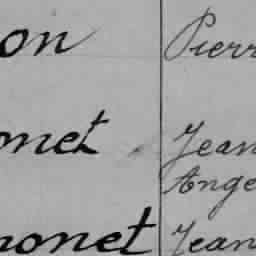 on Pierr
onet Jean
Ange
nonet Jean